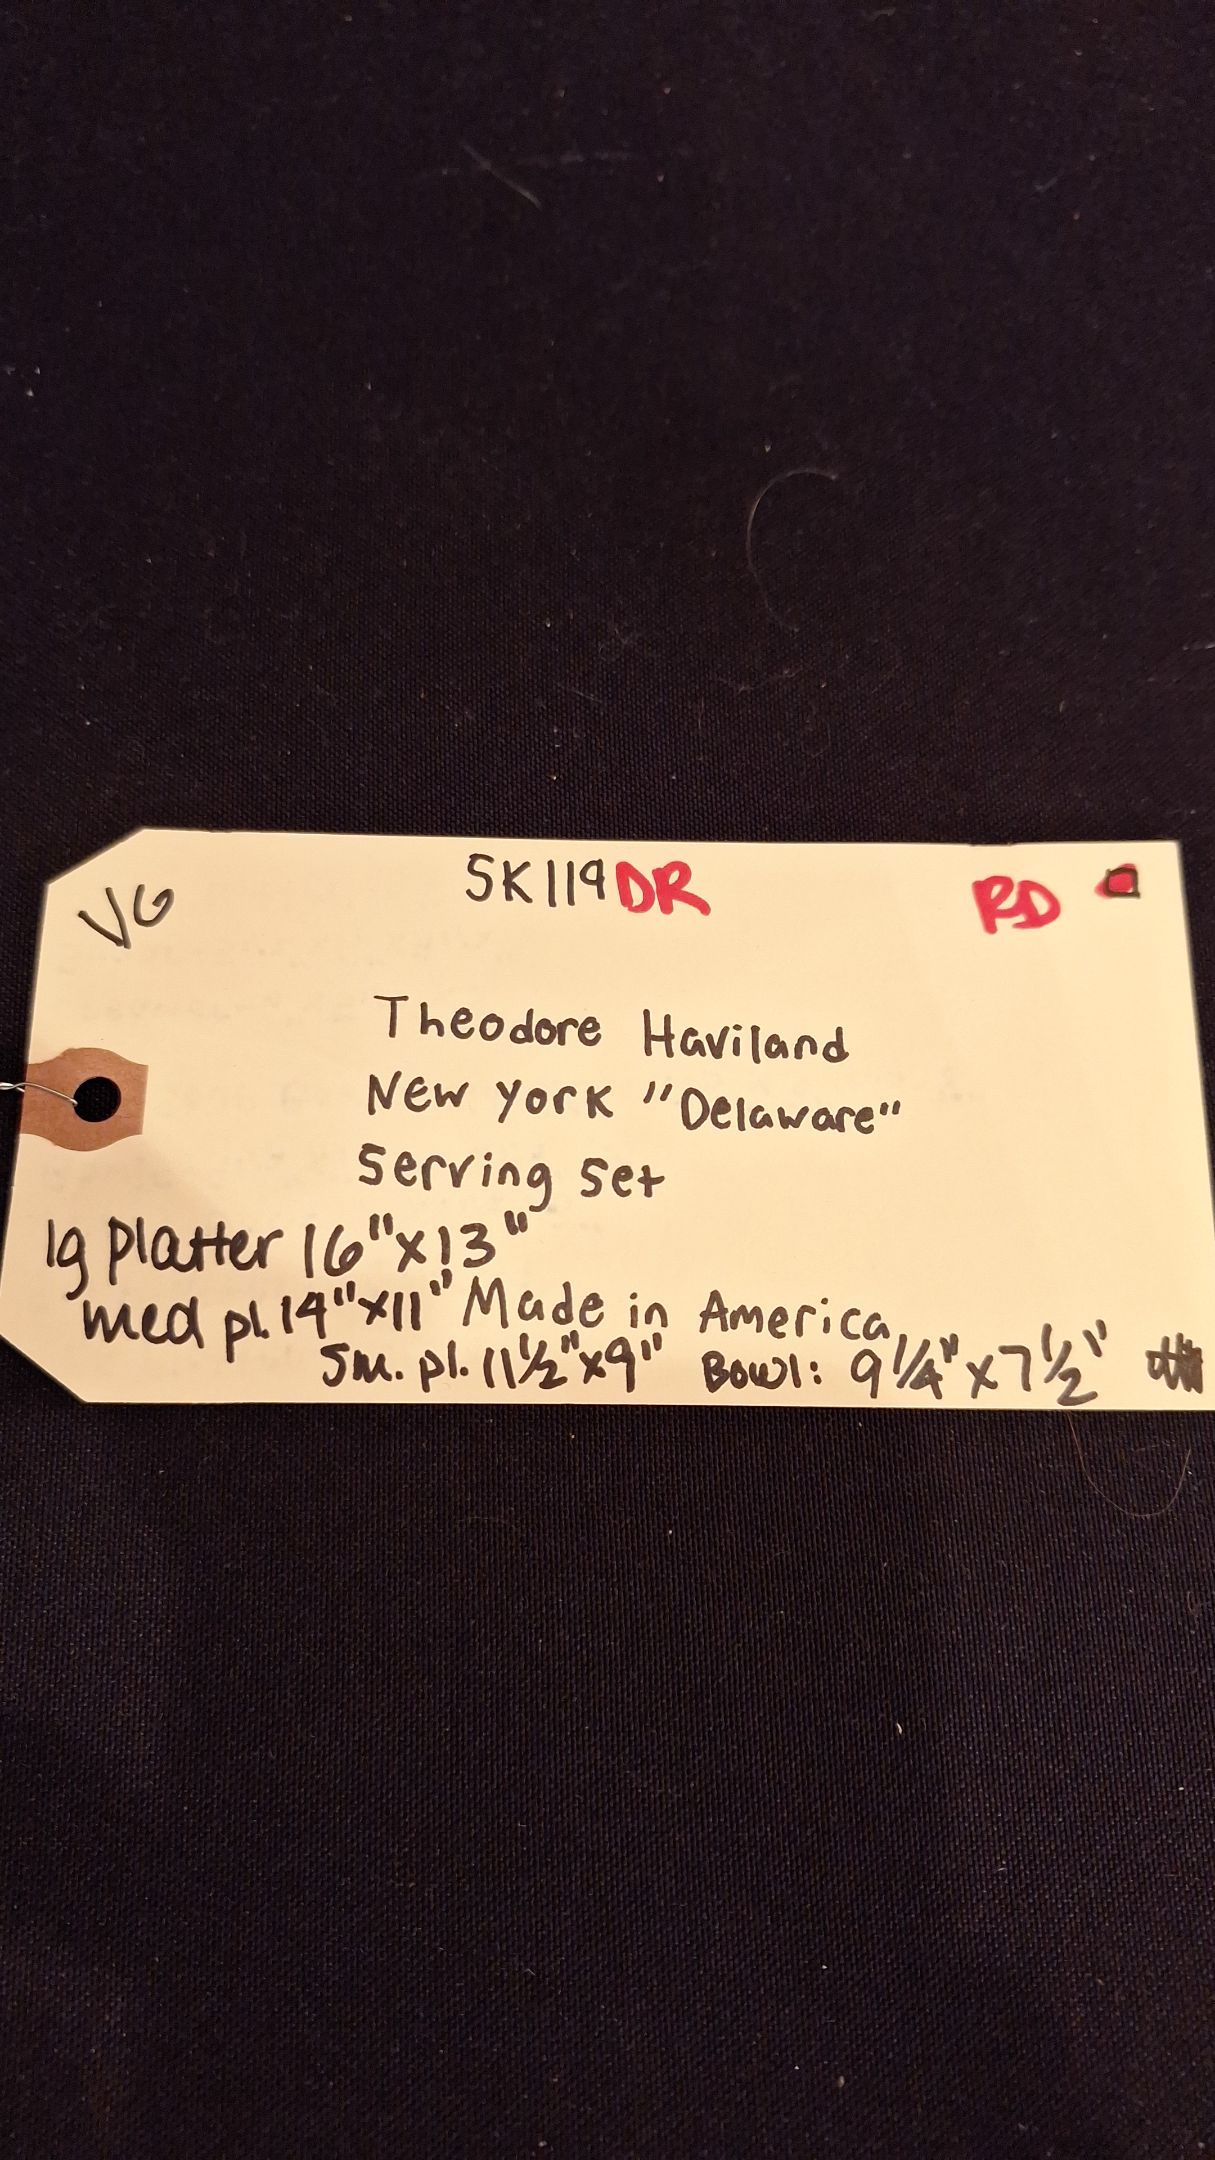 VG SK119DR RD
Theodore Haviland
New York "Delaware"
Serving Set
lg Platter 16"x13"
med pl. 14"x11" Made in America
Sm. pl. 11 1/2"x9" Bowl: 9 1/4"x7 1/2"